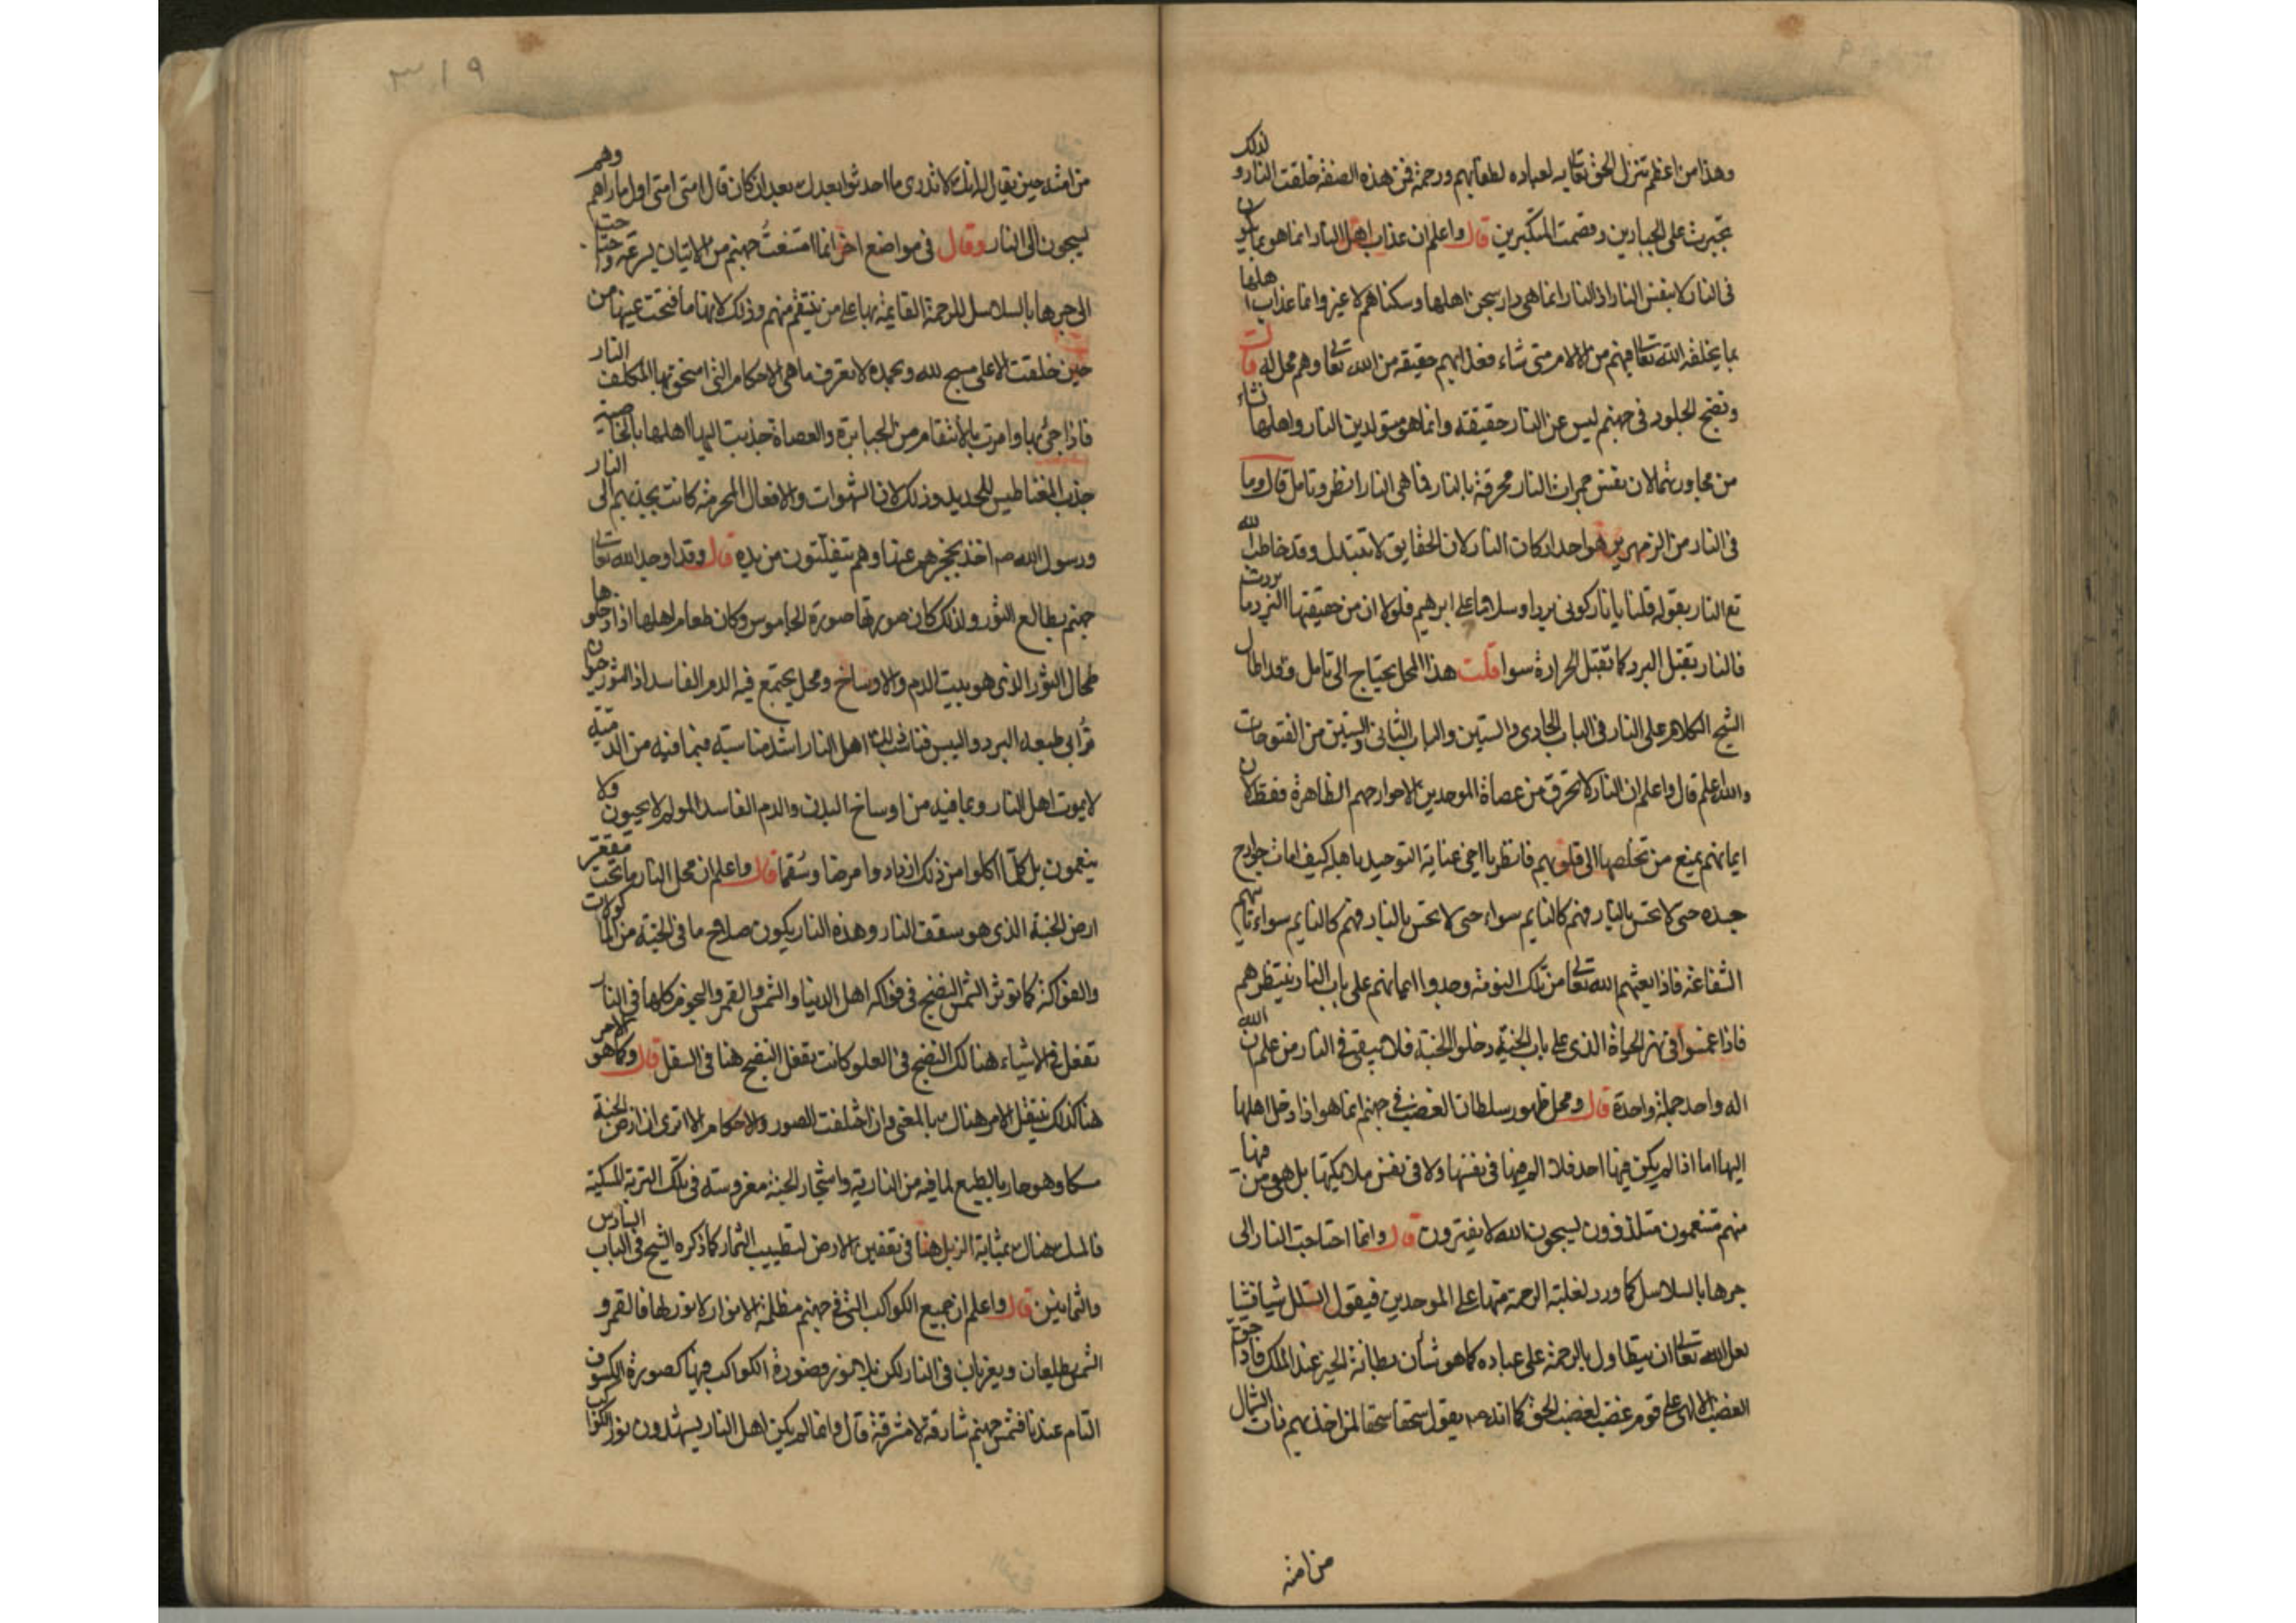 وهذا من اعظم تنزل الحق تعالى به لعباده لطفا بهم ورحمة فمن هذه الصفة خلقت النار ولذلك
تجبرت على الجبارين وقصمت المتكبرين قال واعلم ان عذاب اهل النار انما هو بما يكون
في النار لا بنفس النار اذ النار انما هي دار سجن اهلها وسكناهم لا غير وانما عذاب اهلها
بما يخلقه الله تعالى فيهم من الالام متى شاء فعذابهم حقيقة من الله تعالى وهم محل له قالت
ونضج الجلود في جهنم ليس عن النار حقيقة وانما هو متولد بين النار واهلها نشاء
من مجاورتهما لان نفس جمرات النار محرقة بالنار فما هي النار انظر وتامل قال وما
في النار من الزمهرير هو احد اركان النار لان الحقايق لا تتبدل وقد خاطب الله
تع النار بقوله قلنا يا نار كوني بردا وسلاما على ابرهيم فلولا ان من حقيقتها البرد ما بردت
فالنار تقبل البرد كما تقبل الحرارة سوا قلت هذا المحل يحتاج الى تامل وقد اطال
الشيخ الكلام على النار في الباب الحادي والستين والباب الثاني والستين من الفتوحات
والله اعلم قال واعلم ان النار لا تحرق من عصاة الموحدين الا جوارحهم الظاهرة فقط لان
ايمانهم يمنع من تخلصها الى قلوبهم فانظر يا اخي عناية التوحيد باهله كيف امات جوارح
جسده حتى لا تحس بالنار فهم كالنايم سواء حتى لا تحس بالنار فهم كالنايم سواء تاتيهم
الشفاعة فاذا بعثهم الله تعالى من تلك النومة وجدوا ايمانهم على باب النار ينتظرهم
فاذا غمسوا في نهر الحياة الذي على باب الجنة دخلوا الجنة فلا يبقى في النار من علم ان الله
اله واحد جملة واحدة قال ومحل ظهور سلطان الغضب في جهنم انما هو اذا دخل اهلها
اليها اما اذا لم يكن فيها احد فلا الم فيها في نفسها ولا في نفس ملايكتها بل هي ومن فيها
منهم متنعمون متلذذون يسبحون الله لا يفترون قال وانما احتاجت النار الى
جرها بالسلاسل كما ورد لغلبة الرحمة منها على الموحدين فيقول اتسلل شيا فشيا
لعل الله تعالى ان يتطاول بالرحمة على عباده كما هو شان بطانة الخير عند الملك فاذا حق
الغضب الالهي على قوم غضب لغضب الحق كما انه صم يقول سحقا سحقا لمن اخذ بهم ذات الشمال
من امته
٣١٩
من امته حين يقال له انك لا تدري ما احدثوا بعدك بعد ان كان قال امتي امتي اول ما راهم وهم
يسحبون الى النار وقال في مواضع اخر انما امتنعت جهنم من الاتيان بسرعة وحتا حت
الى جرها بالسلاسل للرحمة القايمة بها على من ينتقم منهم وذلك لانها ما فتحت عينها من
حين خلقت الا على مسبح لله وبحمده لا تعرف ما هي الاحكام التي استحق بها المكلف النار
فاذا جئ بها وامرت بالانتقام من الجبابرة والعصاة جذبت اليها اهلها بالخاصية
جذب المغناطيس للحديد وذلك لان الشهوات والافعال المحرمة كانت تجذبهم الى النار
ورسول الله صم اخذ بحجزهم عنها وهم يتفلتون من يده قال وقد اوجد الله تعالى
جهنم بطالع الثور ولذلك كان صورتها صورة الجاموس وكان طعام اهلها اذا دخلوها
طحال الثور الذي هو بيت الدم والاوساخ ومحل يجتمع فيه الدم الفاسد اذ الثور حيوان
ترابي طبعه البرد واليبس فناسب ذلك اهل النار اشد مناسبة فبما فيه من الدمية
لا يموت اهل النار وبما فيه من اوساخ البدن والدم الفاسد المولم لا يحيون ولا
ينعمون بل كلما اكلوا من ذلك ازدادوا مرضا وسقما قال واعلم ان محل النار ما تحت مقعر
ارض الجنة الذي هو سقف النار وهذه النار يكون صلاح ما في الجنة من الماكولات
والفواكه كما تؤثر الشمس النضج في فواكه اهل الدنيا والشمس والقمر والنجوم كلها في النار
تفعل في الاشياء هنالك النضج في العلو كما كانت تفعل النضج هنا في السفل قال وكما هو الامر
هنا كذلك ينتقل الامر هنالك بالمعنى وان اختلفت الصور والاحكام الا ترى ان ارض الجنة
مسكا وهو حار بالطبع لما فيه من النارية واشجار الجنة مغروسة في تلك التربة المسكية
فالمسك هناك بمثابة الزبل هنا في تعفين الارض لتطييب الثمار كما ذكره الشيخ في الباب السادس
والثمانين قال واعلم ان جميع الكواكب التي في جهنم مظلمة الانوار لا نور لها فالقمر و
الشمس يطلعان ويغربان في النار لكن بلا نور فصورة الكواكب فيها كصورة الكسوف
التام عندنا فشمس جهنم شارقة لا مشرقة قال وانما لم يكن اهل النار يشهدون نور الكواكب